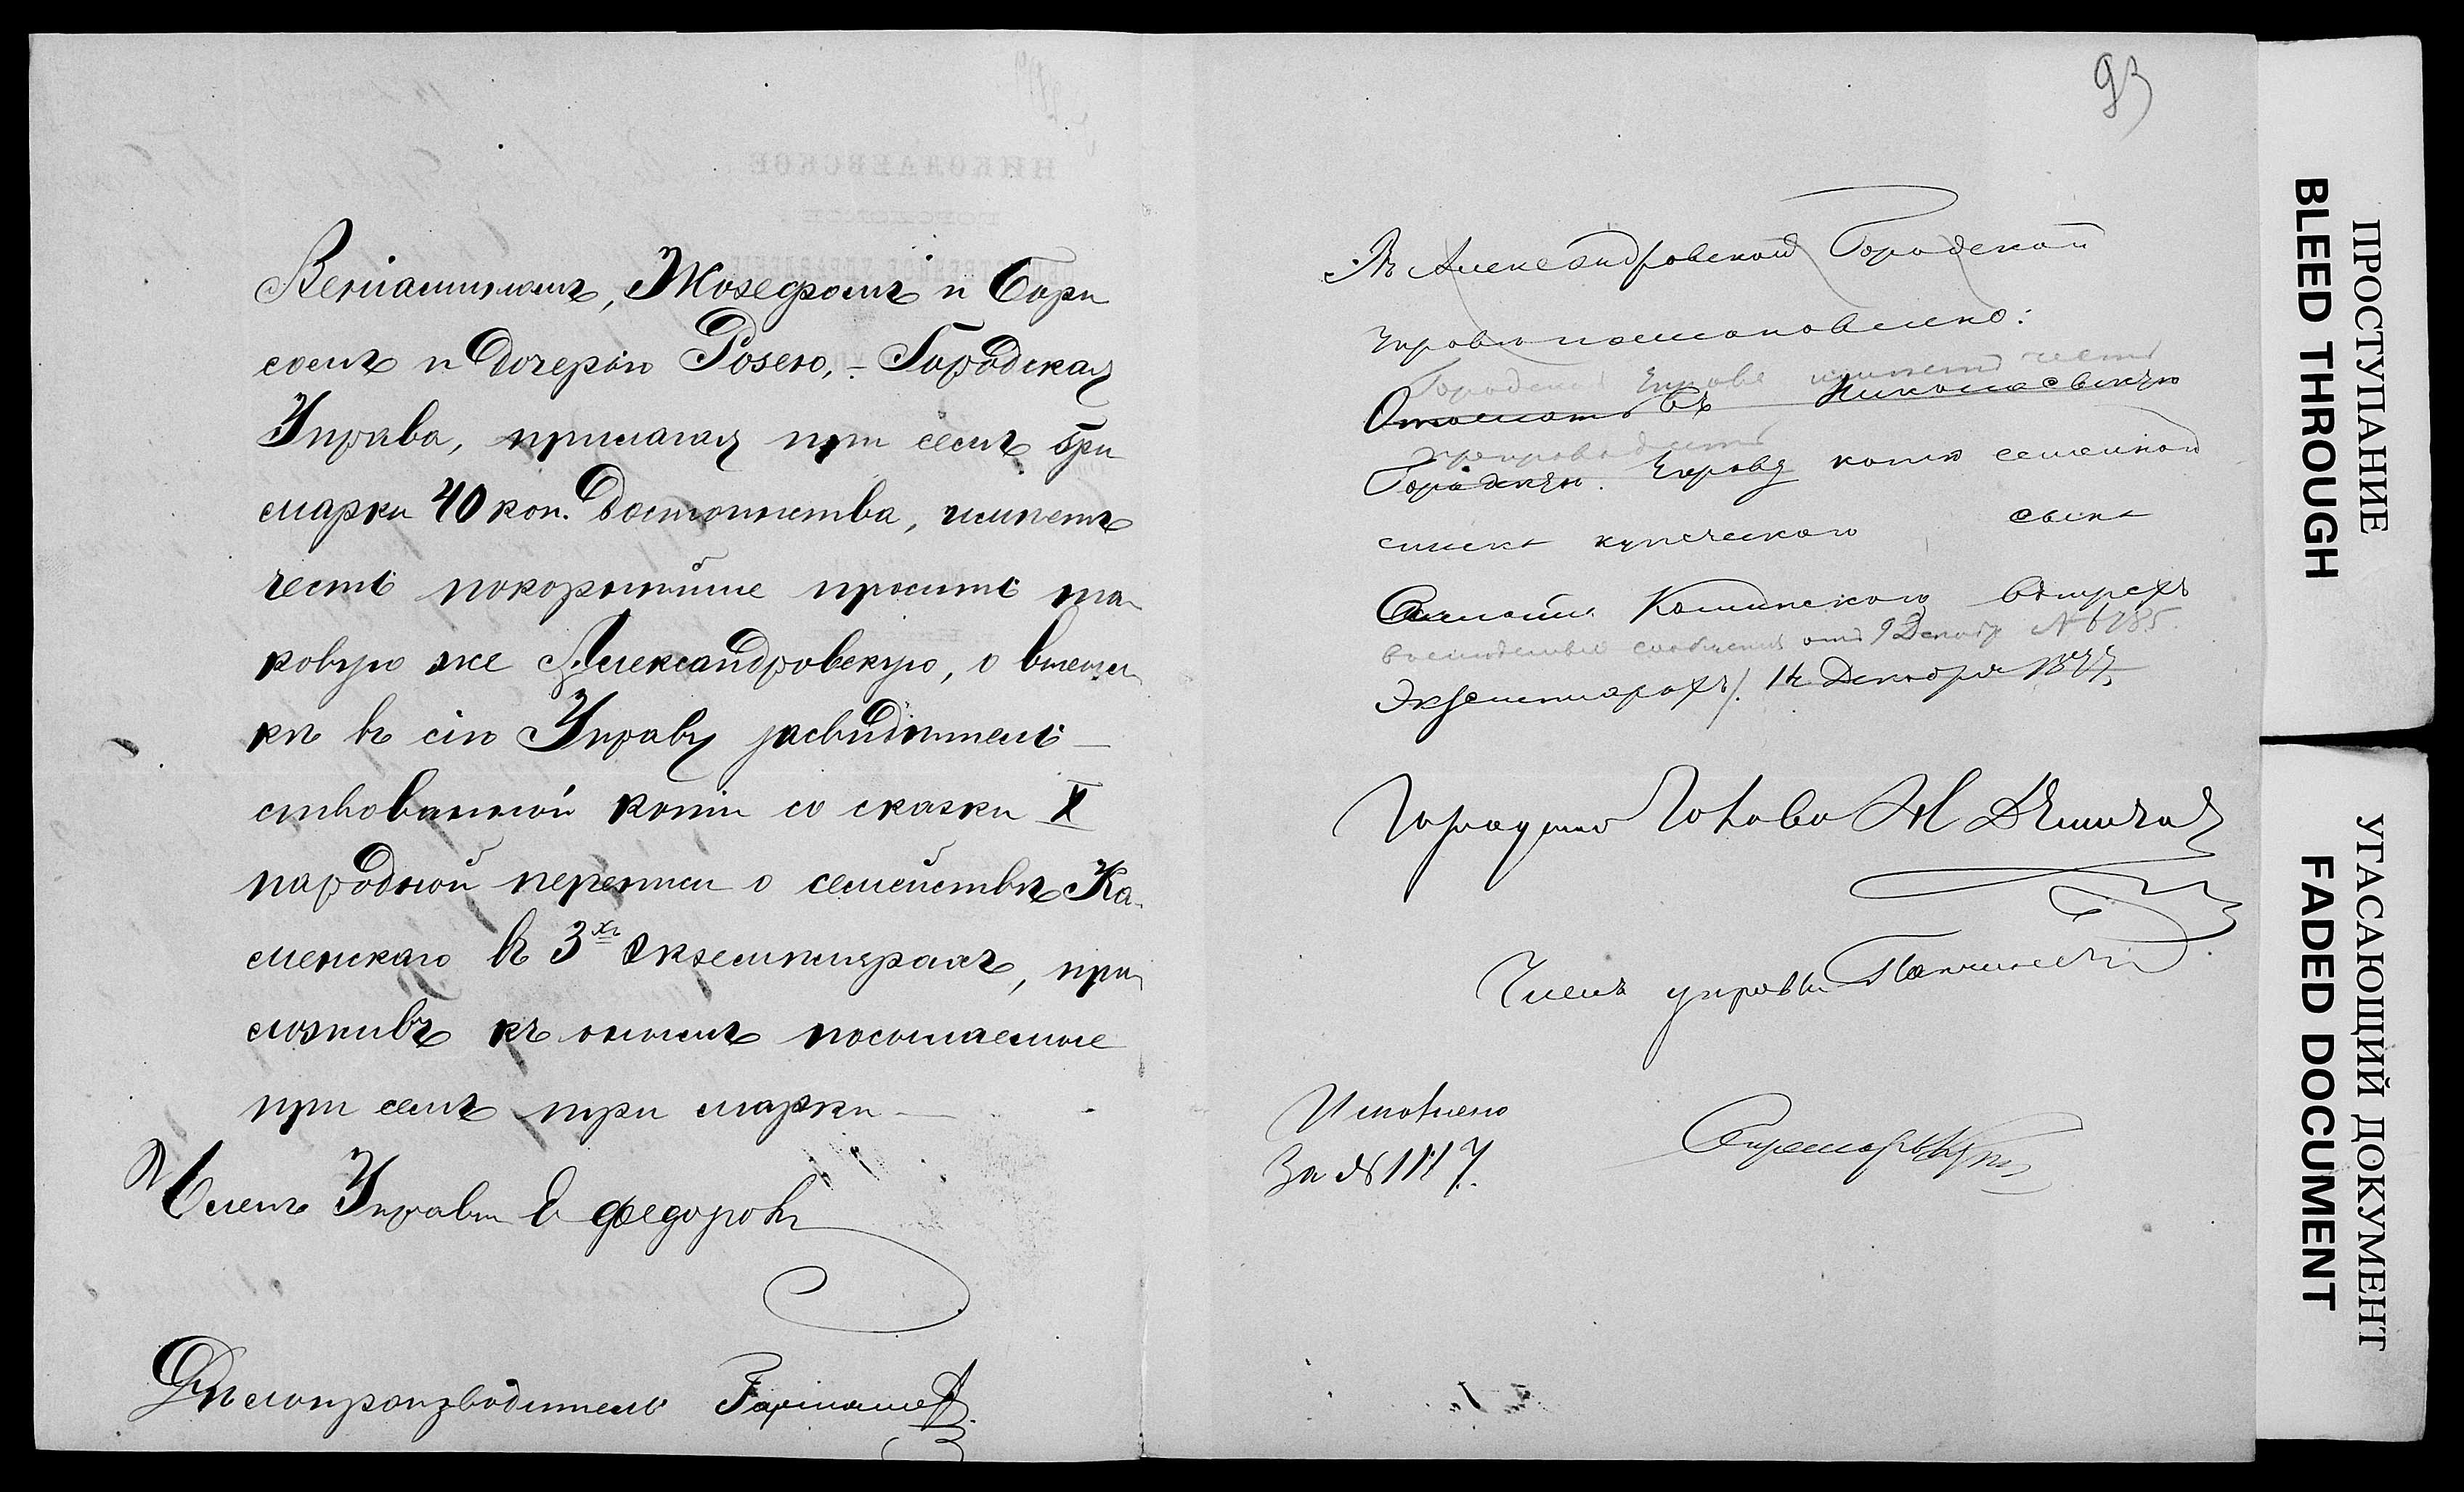 Веніаминомъ, Жозефомъ и Бори
сомъ и дочерью Розею, - Городская
Управа, прилагая при семъ три
марки 40 коп. достоинства, имѣетъ
честь покорнѣйше просить та-
ковую же Александровскую, о высыл-
кѣ въ сію Управу засвидѣтель-
ствованной копіи со сказки X
народной переписи о семействѣ Ка-
менскаго въ 3хъ экземплярахъ, при-
ложивъ къ онымъ посылаемые
при семъ три марки
Членъ Управы Ѳедоровъ
Дѣлопроизводитель
93
Въ Александровской Городской
Управѣ постановлено:
Городской Управѣ имѣетъ честь
Отослать въ Николаевскую
препроводить
Городскую Управу копію семейнаго
списка купеческаго сына
Каминскаго въ трехъ
въ послѣдствіе сообщенія отъ 9 Декабр № 6285.
Экземплярахъ). 14 Декабря 1877
Городской Голова
Членъ управы
Исполнено
За № 1117.
Секретарь
ПРОСТУПАНИЕ
BLEED THROUGH
УГАСАЮЩИЙ ДОКУМЕНТ
FADED DOCUMENT
НИКОЛАЕВСКОЕ
ГОРОДСКОЕ